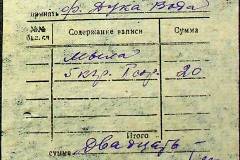 принять ф. Аука Вода
№№ Содержание записи Сумма
Мыла
5 кгр. 20
Итого
сумма Двадцать